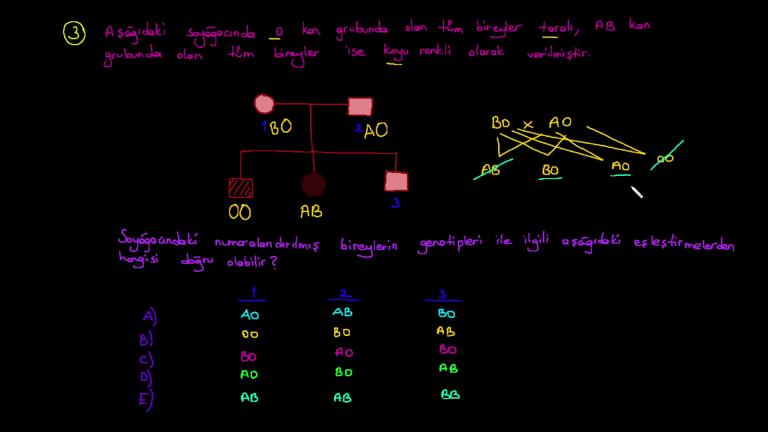 3 Aşağıdaki soyağacında 0 kan grubunda olan tüm bireyler taralı, AB kan
grubunda olan tüm bireyler ise koyu renkli olarak verilmiştir.
1 BO 2 AO
BO x AO
AB BO AO OO
OO AB 3
Soyağacındaki numaralandırılmış bireylerin genotipleri ile ilgili aşağıdaki eşleştirmelerden
hangisi doğru olabilir?
1 2 3
A) AO AB BO
B) OO BO AB
C) BO AO BO
D) AO BO AB
E) AB AB BB